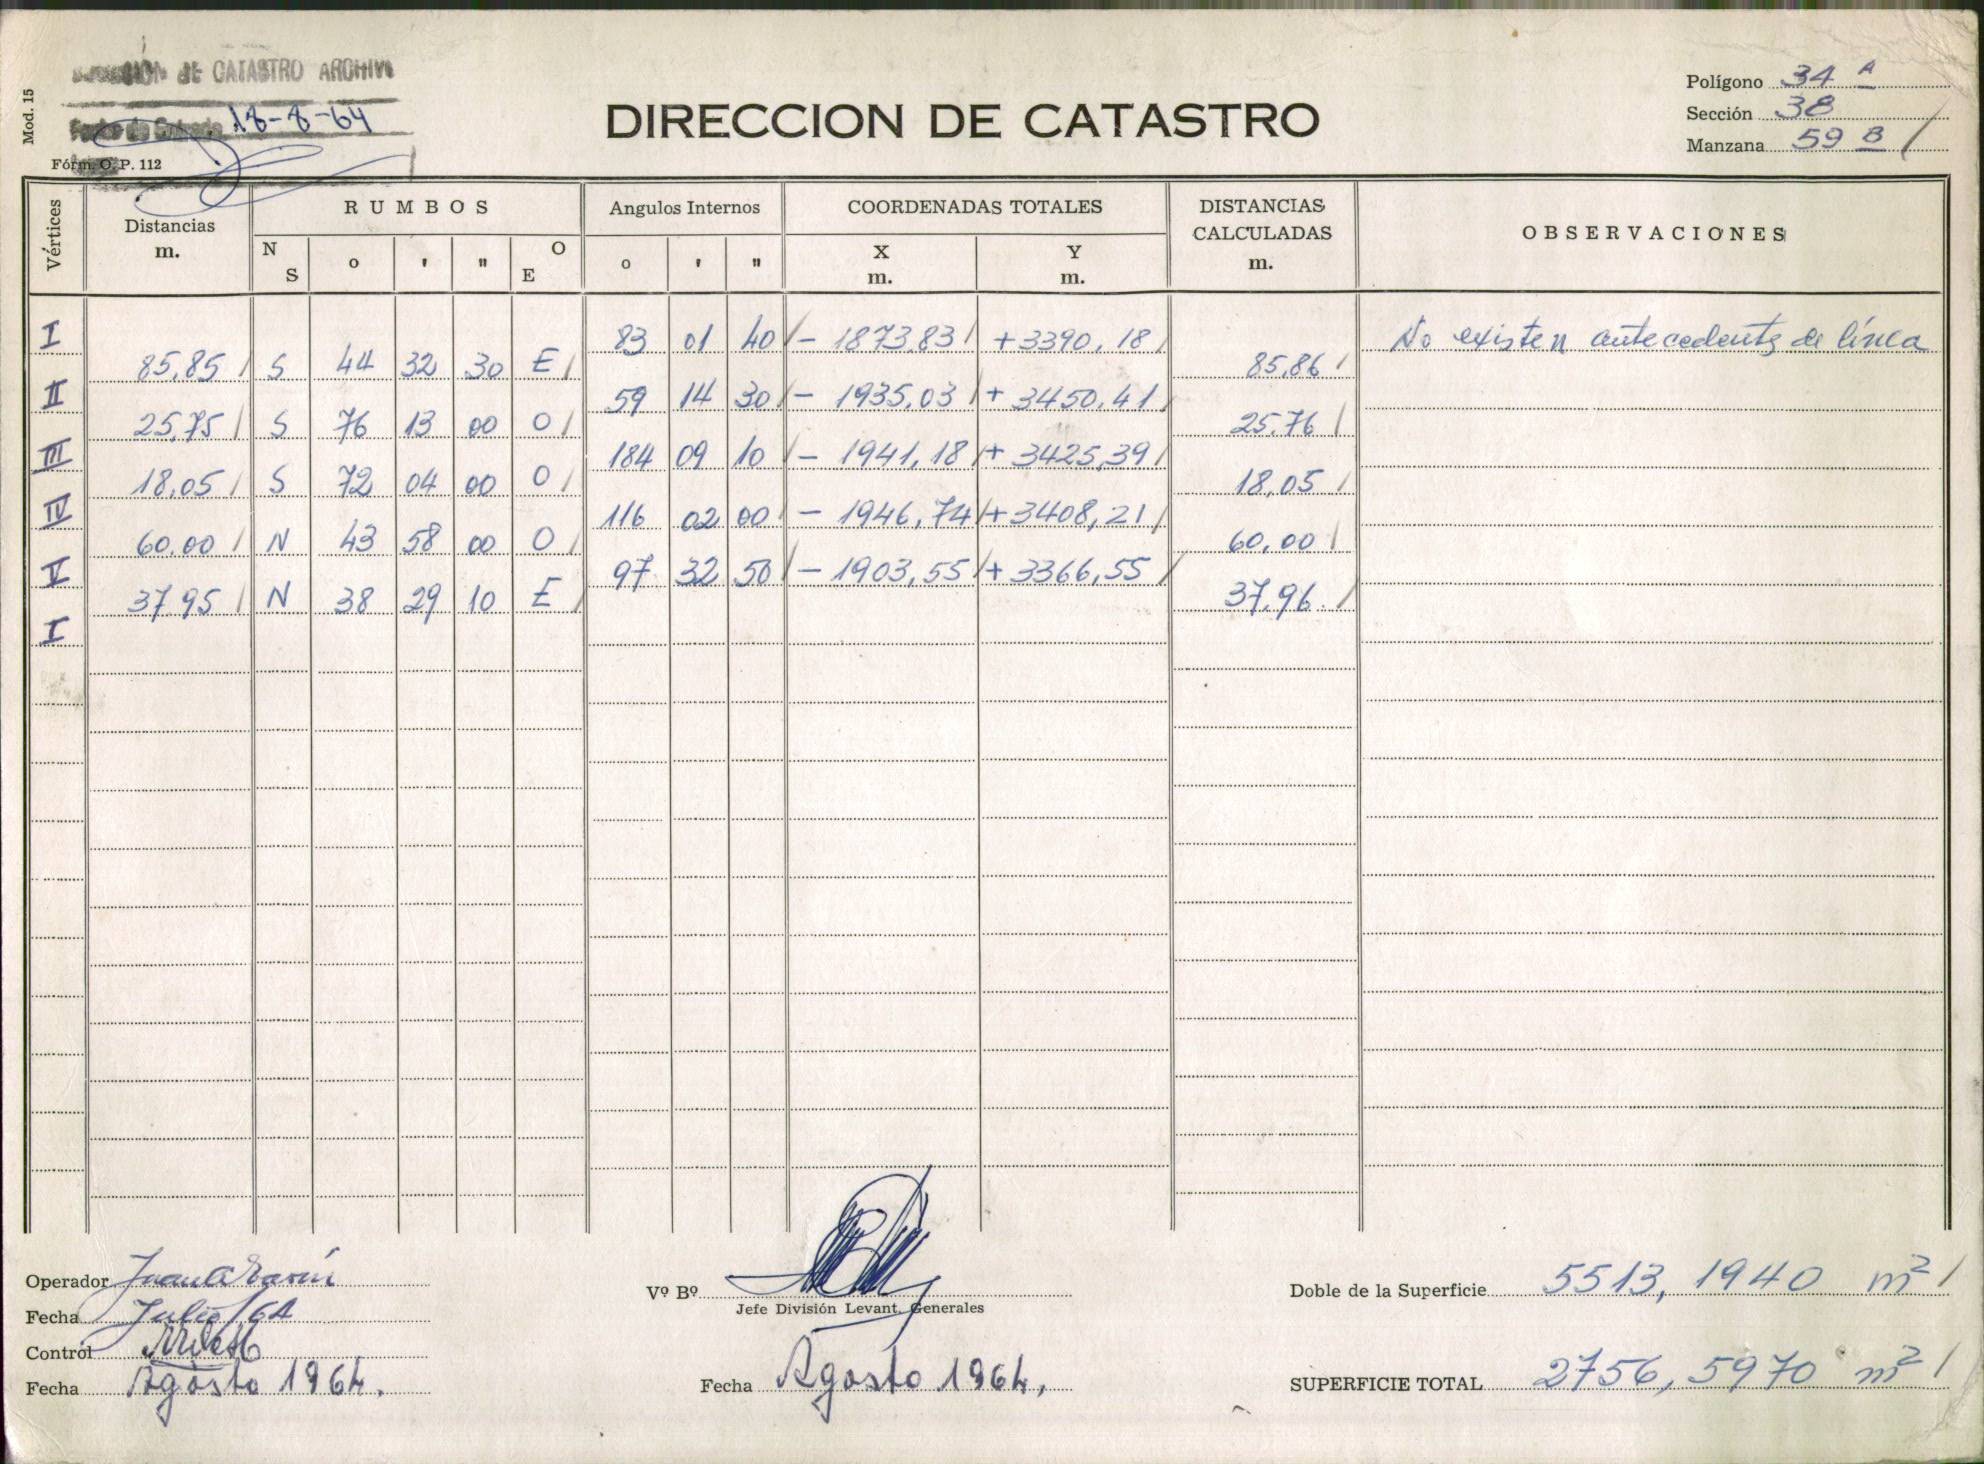 DE CATASTRO ARCHIVO
Mod. 15
18-8-64
Fórm. O. P. 112
DIRECCION DE CATASTRO
Polígono 34 A
Sección 38
Manzana 59 B /
Vértices
Distancias m.
RUMBOS
N S o ' " O E
Angulos Internos
o ' "
COORDENADAS TOTALES
X m. Y m.
DISTANCIAS CALCULADAS m.
OBSERVACIONES
I 83 01 40 / - 1873,83 / +3390,18 / No existen antecedentes de línea
85,85 / S 44 32 30 E / 85,86 /
II 59 14 30 / - 1935,03 / + 3450,41 /
25,75 / S 76 13 00 O / 25,76 /
III 184 09 10 / - 1941,18 / + 3425,39 /
18,05 / S 72 04 00 O / 18,05 /
IV 116 02 00 / - 1946,74 / +3408,21 /
60,00 / N 43 58 00 O / 60,00 /
V 97 32 50 / - 1903,55 / + 3366,55 /
37,95 / N 38 29 10 E / 37,96 /
I
Operador Juan
Fecha Julio/64
Control
Fecha Agosto 1964.
Vº Bº
Jefe División Levant. Generales
Fecha Agosto 1964,
Doble de la Superficie 5513,1940 m² /
SUPERFICIE TOTAL 2756,5970 m² /